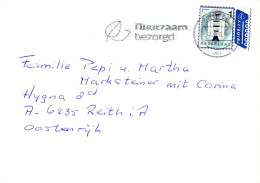 Duurzaam
bezorgd
NEDERLAND
Familie Pepi u. Martha
Marksteiner mit Carina
Hygna 8d
A-6235 Reith i A
Oostenrijk